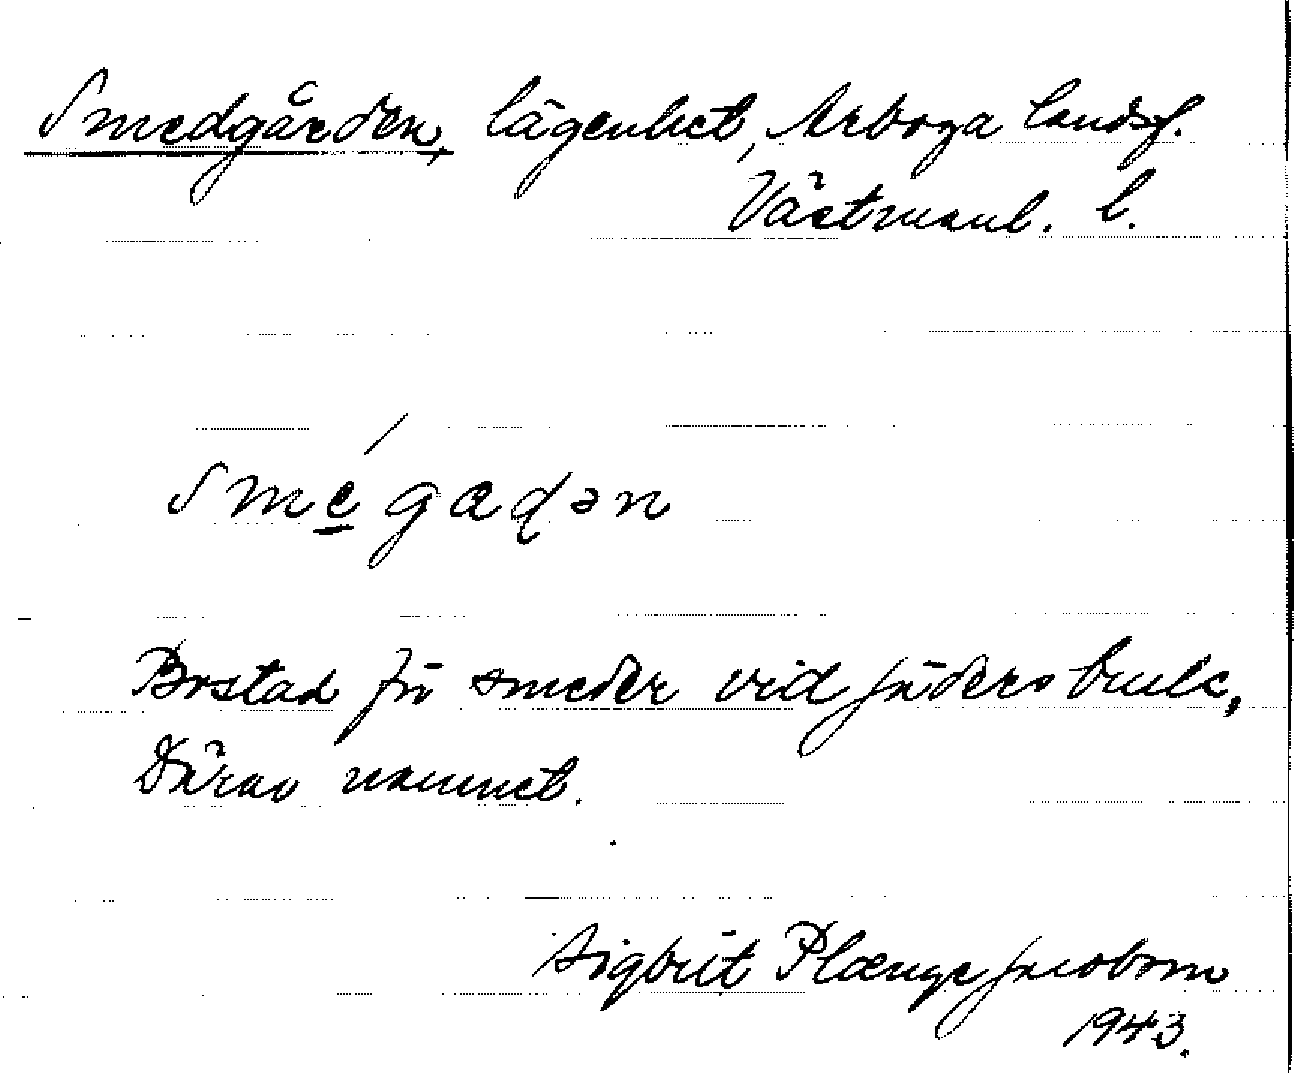 Smedgården, lägenhet, Arboga landsf.
Västmanl. l.
sme̲´gaɖən
Bostad för smeder vid Jäders bruk,
Därav namnet.
Sigbrit Plænge Jacobson
1943.